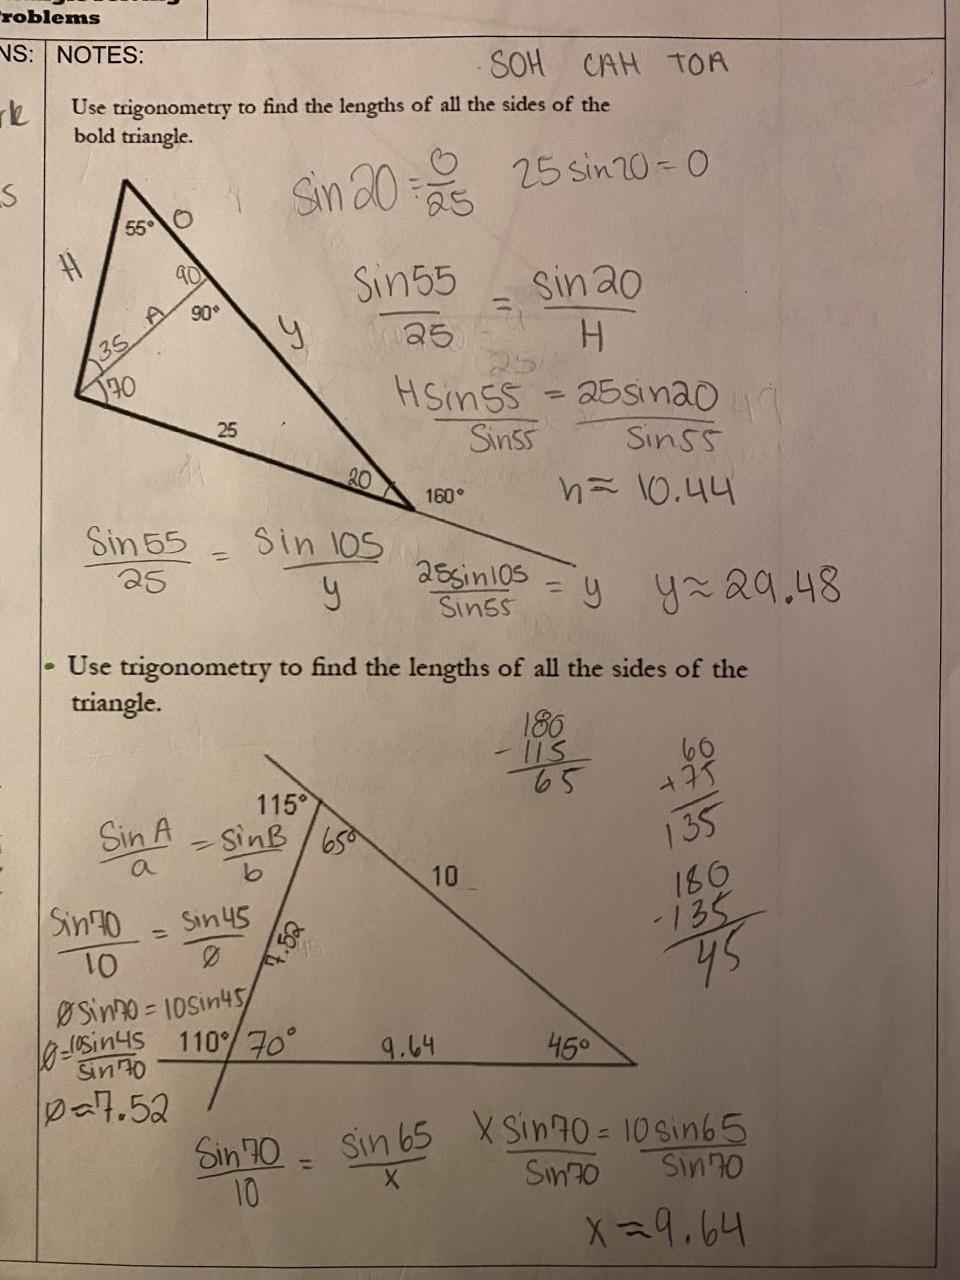 roblems
NS:
NOTES:
SOH CAH TOA
rk
Use trigonometry to find the lengths of all the sides of the
bold triangle.
s
sin 20 = O/25
25 sin 20 = O
55°
O
H
90
A
90°
35
70
y
25
20
160°
Sin55/25 = sin 20/H
H Sin55/Sin55 = 25sin20/Sin55
h ≈ 10.44
Sin 55/25 = Sin 105/y
25sin105/Sin55 = y
y ≈ 29.48
• Use trigonometry to find the lengths of all the sides of the
triangle.
180
- 115
65
60
+ 75
135
180
- 135
45
115°
65°
10
7.52
110°
70°
9.64
45°
Sin A/a = Sin B/b
Sin70/10 = Sin 45/Ø
Ø Sin70 = 10Sin45
Ø = 10sin45/Sin70
Ø ≈ 7.52
Sin70/10 = Sin 65/x
X Sin70/Sin70 = 10sin65/Sin70
x ≈ 9.64